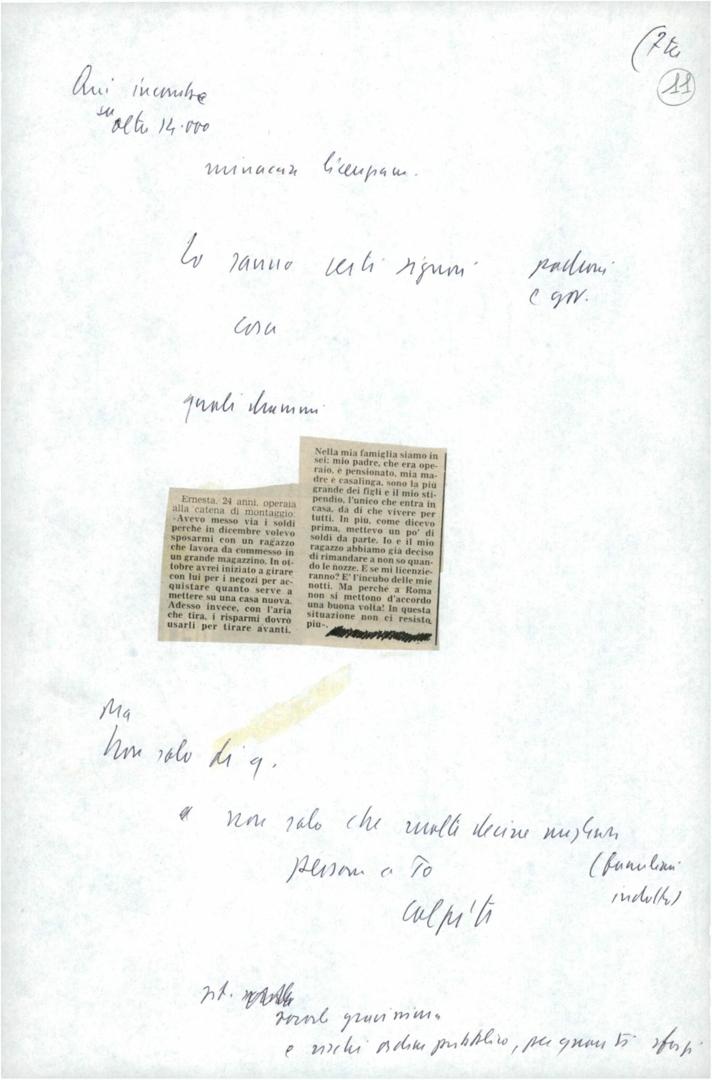 (7 to
11
Qui incombe
su
oltre 14.000
minaccia licenziam.
Lo sanno certi signori padroni
e gov.
cosa
quali drammi
Ernesta, 24 anni, operaia
alla catena di montaggio:
«Avevo messo via i soldi
perché in dicembre volevo
sposarmi con un ragazzo
che lavora da commesso in
un grande magazzino. In ot-
tobre avrei iniziato a girare
con lui per i negozi per ac-
quistare quanto serve a
mettere su una casa nuova.
Adesso invece, con l'aria
che tira, i risparmi dovrò
usarli per tirare avanti.
Nella mia famiglia siamo in
sei: mio padre, che era ope-
raio, è pensionato, mia ma-
dre è casalinga, sono la più
grande dei figli e il mio sti-
pendio, l'unico che entra in
casa, dà di che vivere per
tutti. In più, come dicevo
prima, mettevo un po' di
soldi da parte. Io e il mio
ragazzo abbiamo già deciso
di rimandare a non so quan-
do le nozze. E se mi licenzie-
ranno? E' l'incubo delle mie
notti. Ma perché a Roma
non si mettono d'accordo
una buona volta! In questa
situazione non ci resisto
più».
Ma
Non solo di q.
non solo che molte decine migliaia
persone a To (familiari
indotto)
colpiti
sit.
sociale gravissima
e rischi ordine pubblico, per quanti sforzi